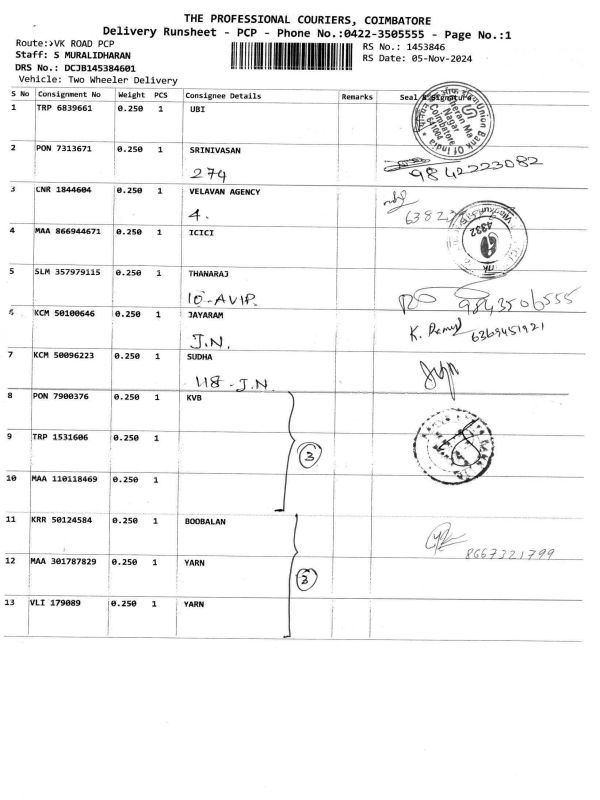 THE PROFESSIONAL COURIERS, COIMBATORE
Delivery Runsheet - PCP - Phone No.:0422-3505555 - Page No.:1
Route:>VK ROAD PCP
RS No.: 1453846
Staff: S MURALIDHARAN
RS Date: 05-Nov-2024
DRS No.: DCJB145384601
Vehicle: Two Wheeler Delivery
S No Consignment No Weight PCS Consignee Details Remarks Seal & Signature
1 TRP 6839661 0.250 1 UBI
Union Bank Of India
Nagar
Coimbatore
641004
2 PON 7313671 0.250 1 SRINIVASAN
274 9842223082
3 CNR 1844604 0.250 1 VELAVAN AGENCY
4.
4 MAA 866944671 0.250 1 ICICI
4332
5 SLM 357979115 0.250 1 THANARAJ
10-AVIP. 9843506555
6 KCM 50100646 0.250 1 JAYARAM
J.N. 6369451921
7 KCM 50096223 0.250 1 SUDHA
118-J.N.
8 PON 7900376 0.250 1 KVB
9 TRP 1531606 0.250 1
3
10 MAA 110118469 0.250 1
11 KRR 50124584 0.250 1 BOOBALAN
8667321799
12 MAA 301787829 0.250 1 YARN
3
13 VLI 179089 0.250 1 YARN